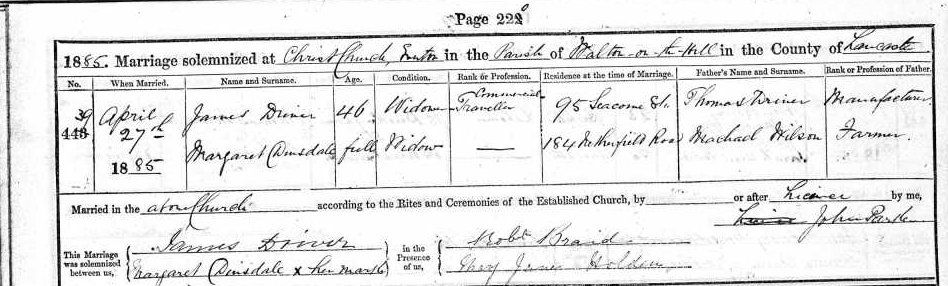 Page 228
1885. Marriage solemnized at Christ Church Everton in the Parish of Walton-on-the-Hill in the County of Lancaster
No. When Married. Name and Surname. Age. Condition. Rank or Profession. Residence at the time of Marriage. Father's Name and Surname. Rank or Profession of Father.
39 April 27th 1885 James Driver 46 Widower Commercial Traveller 95 Seacome St. Thomas Driver Manufacturer
443 Margaret Dinsdale full Widow — 184 Netherfield Road Machael Wilson Farmer
Married in the above Church according to the Rites and Ceremonies of the Established Church, by or after Licence by me,
John
This Marriage was solemnized between us, James Driver
Margaret Dinsdale x her mark
in the Presence of us, Robt Braid
Mary Jane Holden